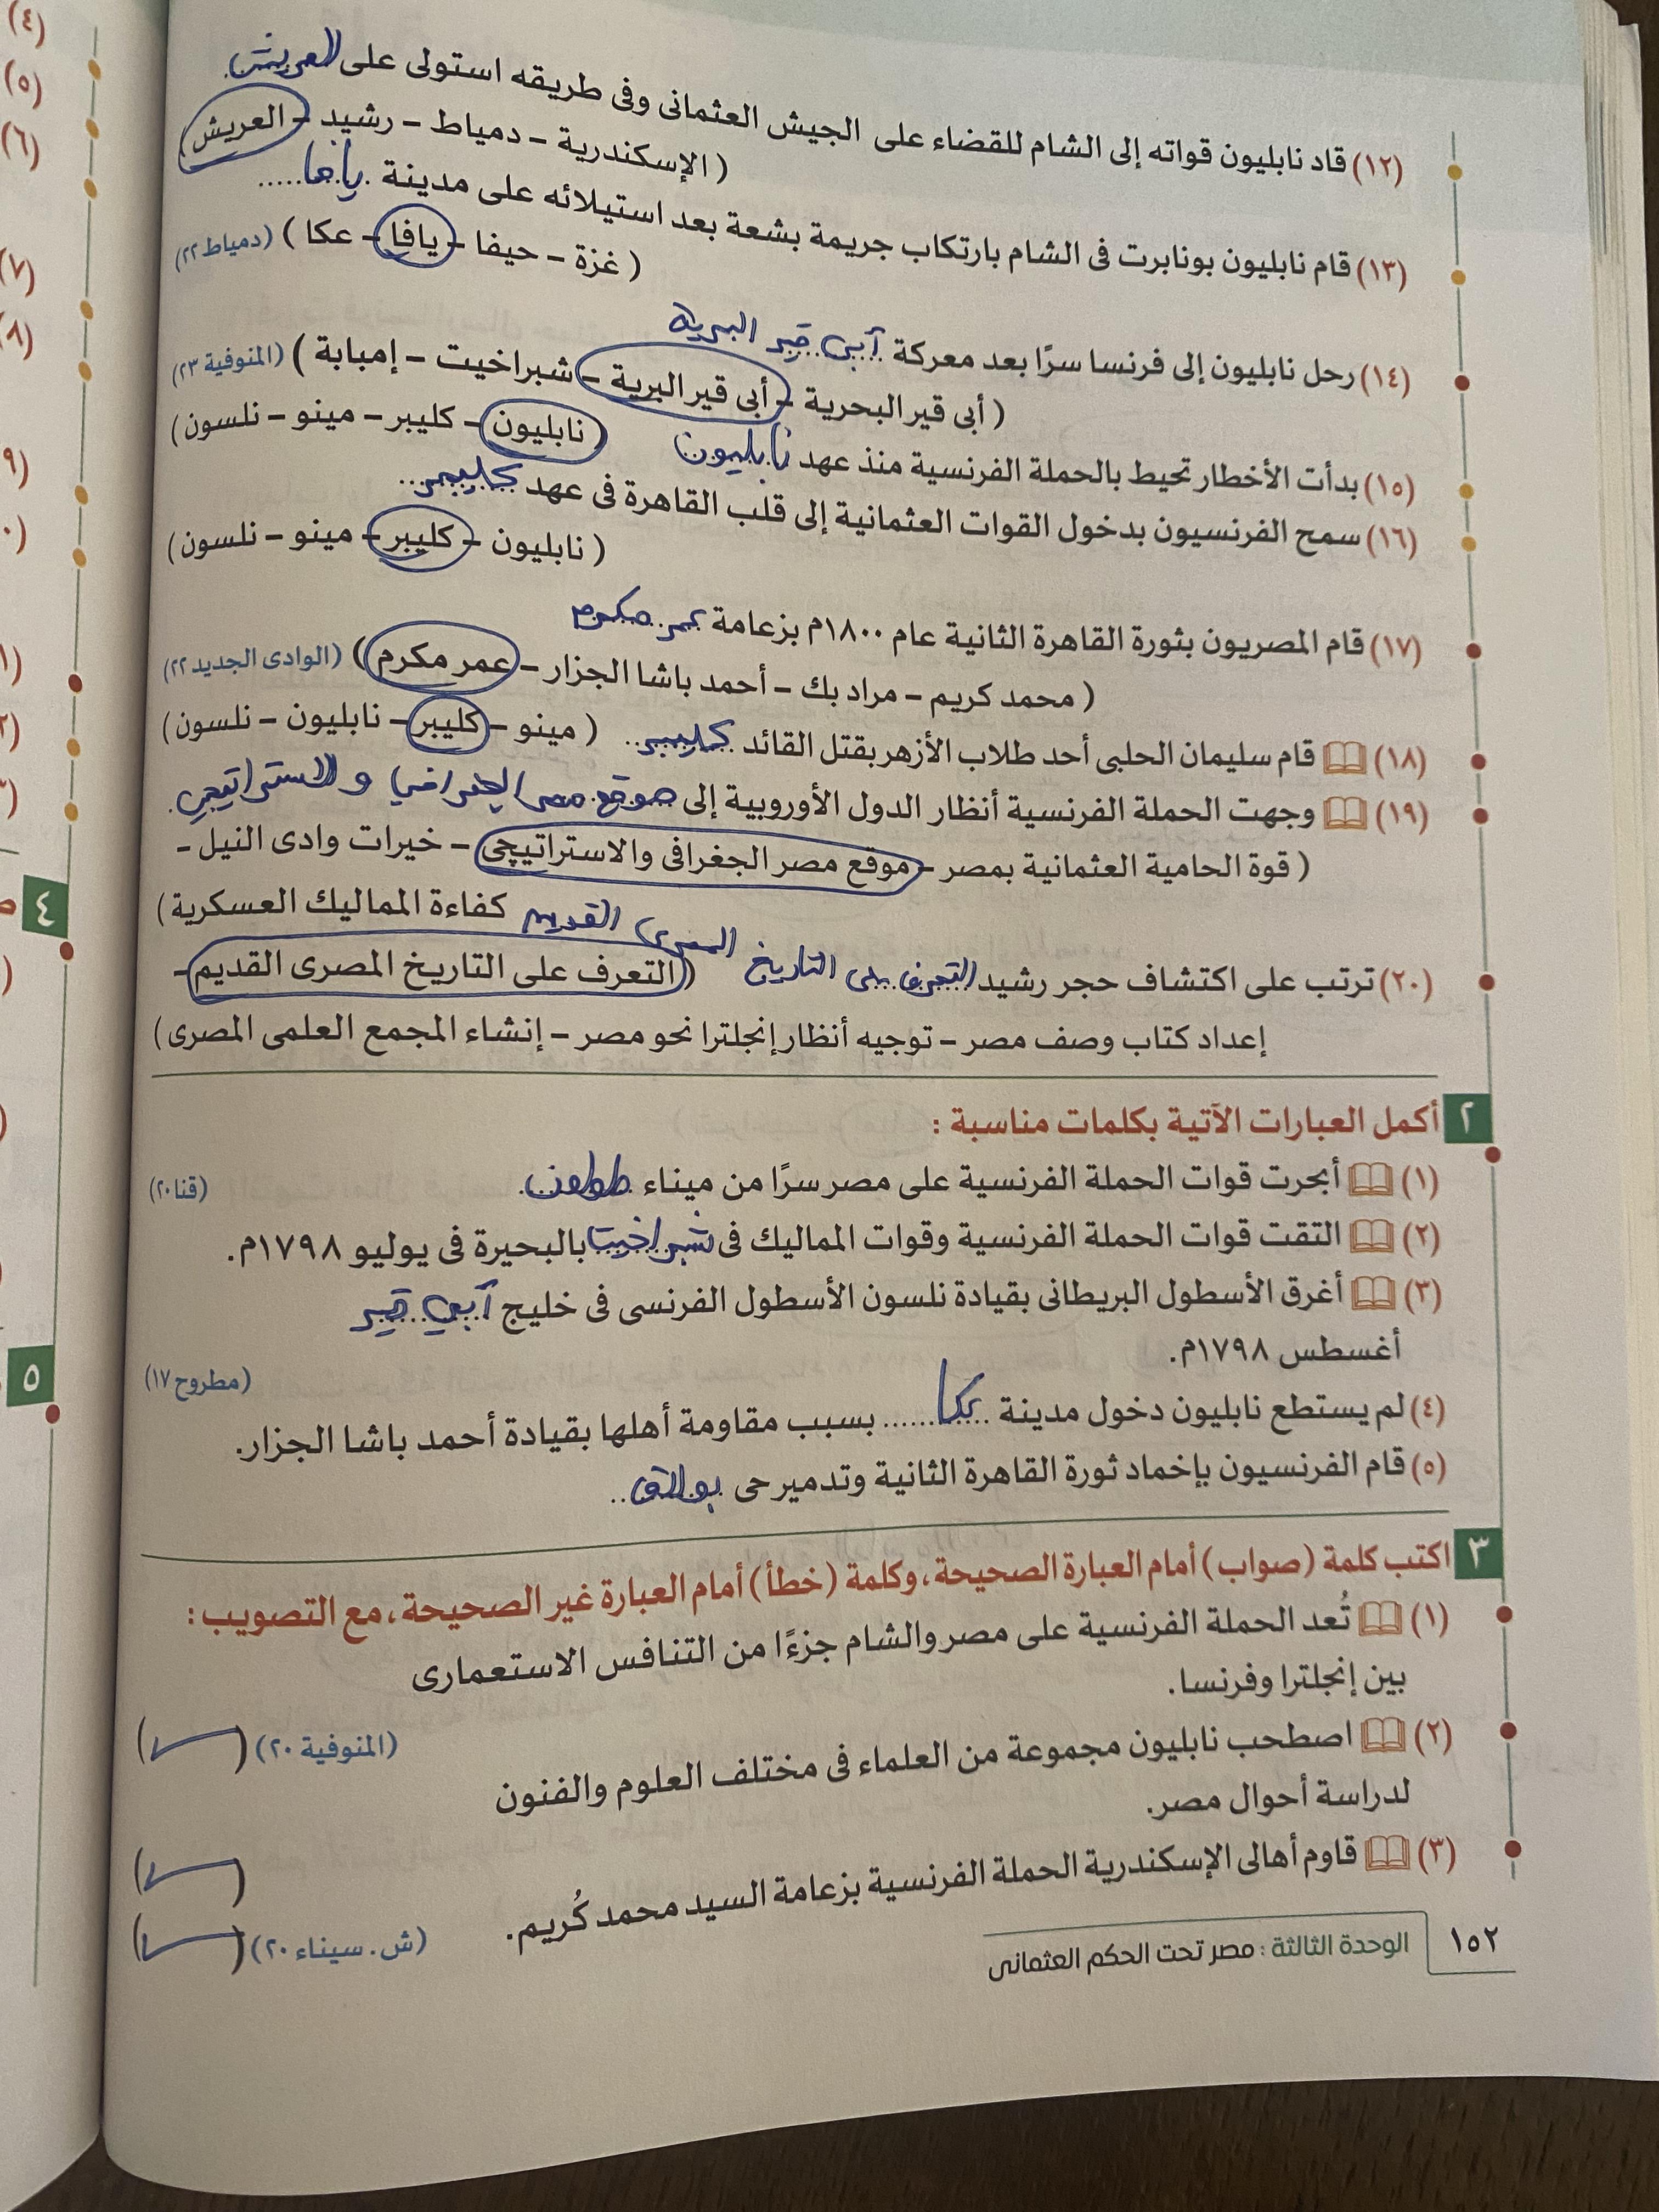 (١٢) قاد نابليون قواته إلى الشام للقضاء على الجيش العثمانى وفى طريقه استولى على العريش
( الإسكندرية - دمياط - رشيد - العريش )
(١٣) قام نابليون بونابرت فى الشام بارتكاب جريمة بشعة بعد استيلائه على مدينة يافا .....
( غزة - حيفا - يافا - عكا ) (دمياط ٢٢)
(١٤) رحل نابليون إلى فرنسا سرًا بعد معركة أبى قير البرية
( أبى قير البحرية - أبى قير البرية - شبراخيت - إمبابة ) (المنوفية ٢٣)
(١٥) بدأت الأخطار تحيط بالحملة الفرنسية منذ عهد نابليون (نابليون - كليبر - مينو - نلسون)
(١٦) سمح الفرنسيون بدخول القوات العثمانية إلى قلب القاهرة فى عهد كليبر ...
( نابليون - كليبر - مينو - نلسون )
(١٧) قام المصريون بثورة القاهرة الثانية عام ١٨٠٠م بزعامة عمر مكرم
( محمد كريم - مراد بك - أحمد باشا الجزار - عمر مكرم ) (الوادى الجديد ٢٢)
(١٨) قام سليمان الحلبى أحد طلاب الأزهر بقتل القائد كليبر .. ( مينو - كليبر - نابليون - نلسون )
(١٩) وجهت الحملة الفرنسية أنظار الدول الأوروبية إلى موقع مصر الجغرافى والاستراتيجى .
( قوة الحامية العثمانية بمصر - موقع مصر الجغرافى والاستراتيجى - خيرات وادى النيل -
كفاءة المماليك العسكرية )
(٢٠) ترتب على اكتشاف حجر رشيد التعرف على التاريخ المصرى القديم ( التعرف على التاريخ المصرى القديم -
إعداد كتاب وصف مصر - توجيه أنظار إنجلترا نحو مصر - إنشاء المجمع العلمى المصرى )
٢ أكمل العبارات الآتية بكلمات مناسبة :
(١) أبحرت قوات الحملة الفرنسية على مصر سرًا من ميناء طولون. (قنا ٢٠)
(٢) التقت قوات الحملة الفرنسية وقوات المماليك فى شبراخيت بالبحيرة فى يوليو ١٧٩٨م.
(٣) أغرق الأسطول البريطانى بقيادة نلسون الأسطول الفرنسى فى خليج أبى قير
أغسطس ١٧٩٨م. (مطروح ١٧)
(٤) لم يستطع نابليون دخول مدينة عكا ...... بسبب مقاومة أهلها بقيادة أحمد باشا الجزار.
(٥) قام الفرنسيون بإخماد ثورة القاهرة الثانية وتدمير حى بولاق ..
٣ اكتب كلمة (صواب) أمام العبارة الصحيحة، وكلمة (خطأ) أمام العبارة غير الصحيحة، مع التصويب :
(١) تُعد الحملة الفرنسية على مصر والشام جزءًا من التنافس الاستعمارى
بين إنجلترا وفرنسا. (المنوفية ٢٠) (✓)
(٢) اصطحب نابليون مجموعة من العلماء فى مختلف العلوم والفنون
لدراسة أحوال مصر. (✓)
(٣) قاوم أهالى الإسكندرية الحملة الفرنسية بزعامة السيد محمد كُريم. (ش. سيناء ٢٠) (✓)
١٥٢ الوحدة الثالثة : مصر تحت الحكم العثمانى
(٤)
(٥)
(٦)
(٧)
(٨)
٤
٥